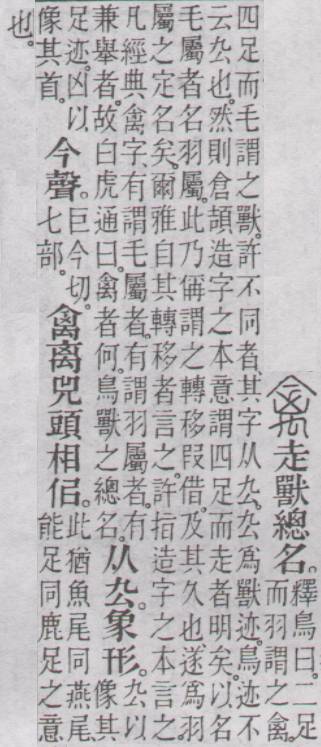 走獸總名。
釋鳥曰。二足
而羽謂之禽。
四足而毛謂之獸。許不同者、其字从厹。厹爲獸迹。鳥迹不
云厹也。然則倉頡造字之本意謂四足而走者明矣。以名
毛屬者名羽屬。此乃偁謂之轉移叚借。及其久也遂爲羽
屬之定名矣。爾雅自其轉移者言之。許指造字之本言之。
凡經典禽字、有謂毛屬者。有謂羽屬者。有
兼舉者。故白虎通曰。禽者何。鳥獸之總名。
从厹。象形。
厹以
像其
足迹。凶以
像其首。
今聲。
巨今切。
七部。
禽离兕頭相佀。
此猶魚尾同燕尾。
能足同鹿足之意
也。